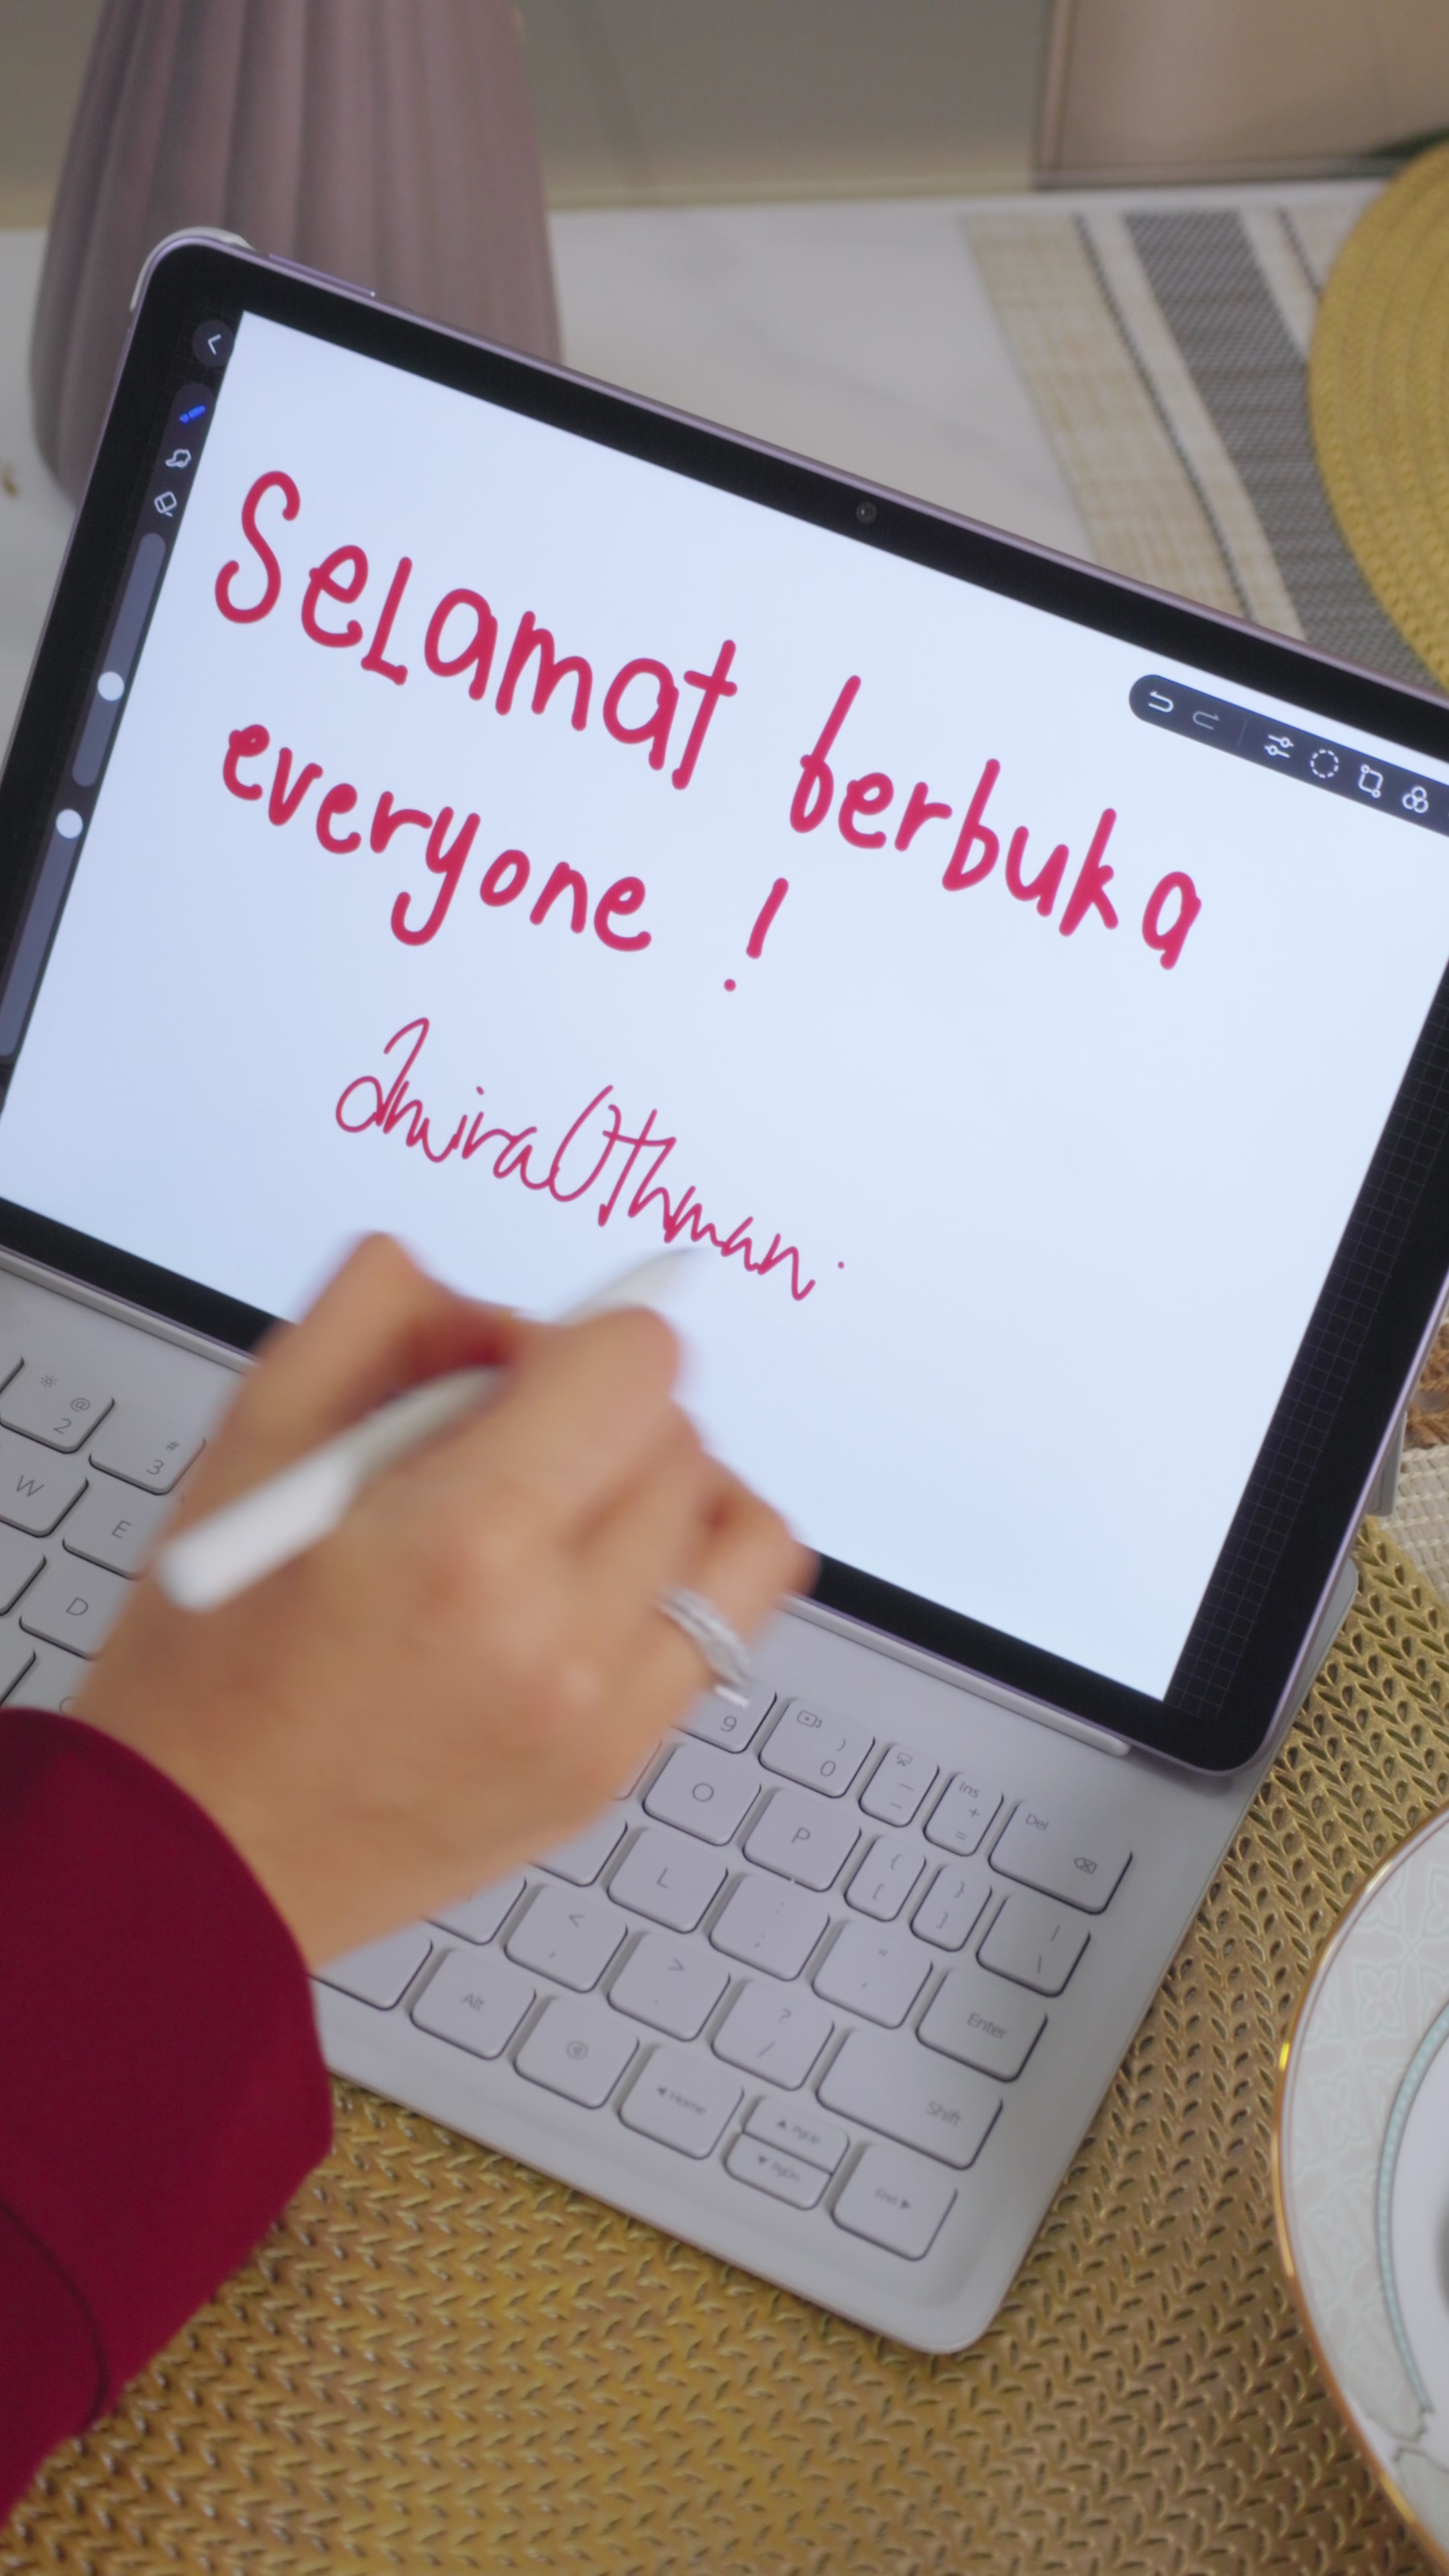 Selamat berbuka
everyone !
Amira Othman.
@
2
#
3
W
E
D
9
)
0
_
-
Ins
+
=
Del
O
P
{
[
}
]
|
\
L
:
;
"
'
Enter
<
,
>
.
?
/
Shift
Alt
Home
PgUp
PgDn
End